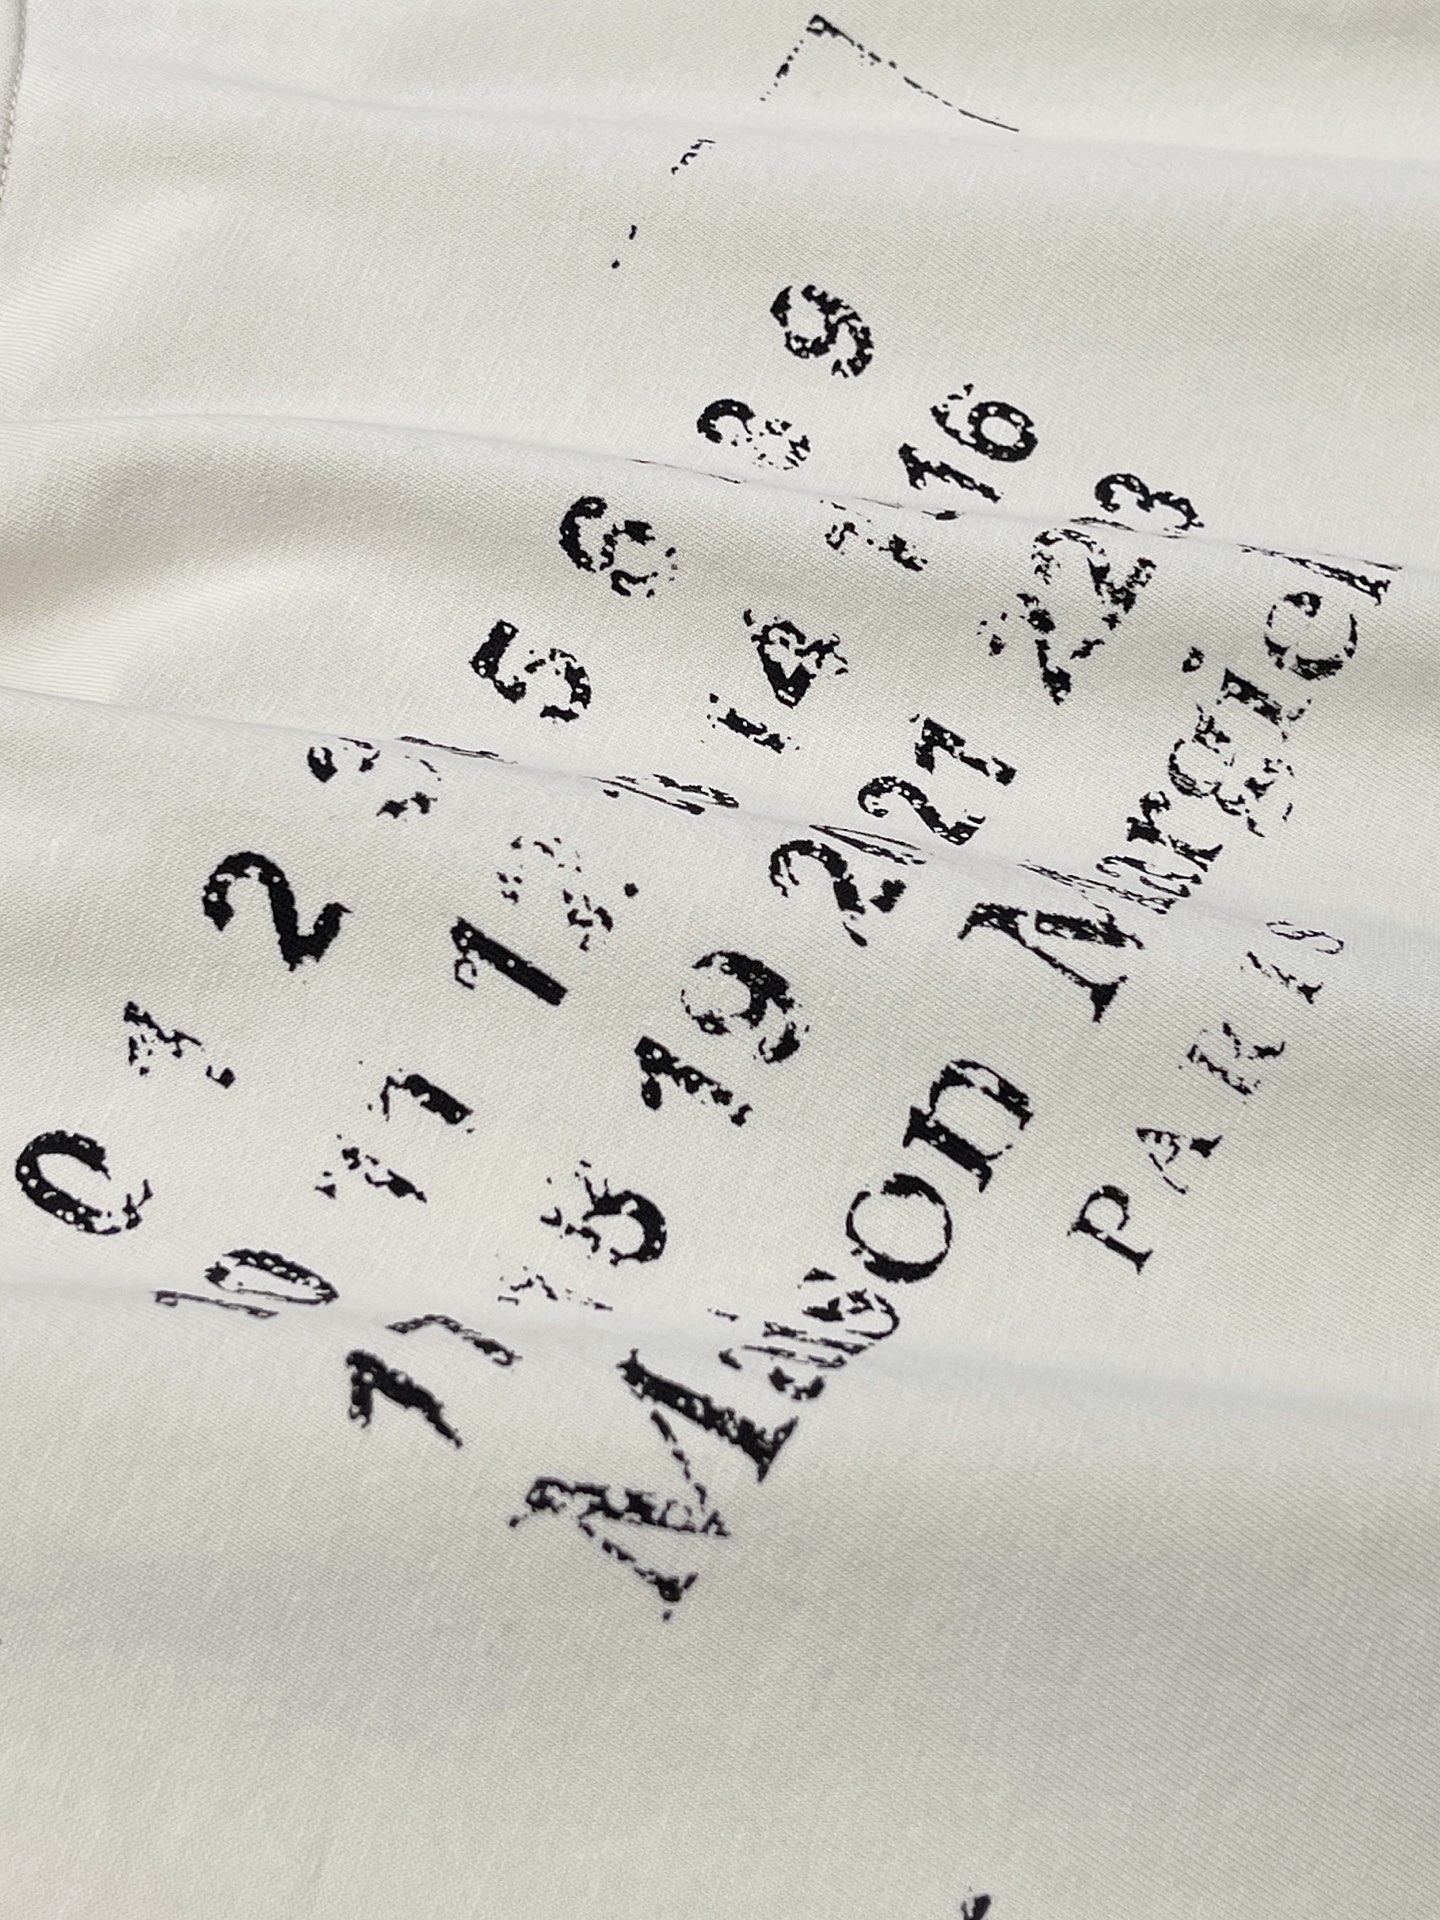 0 1 2 3 5 6 8 9
10 11 14 16
17 18 19 20 21 22 23
Maison Margiel
PARIS